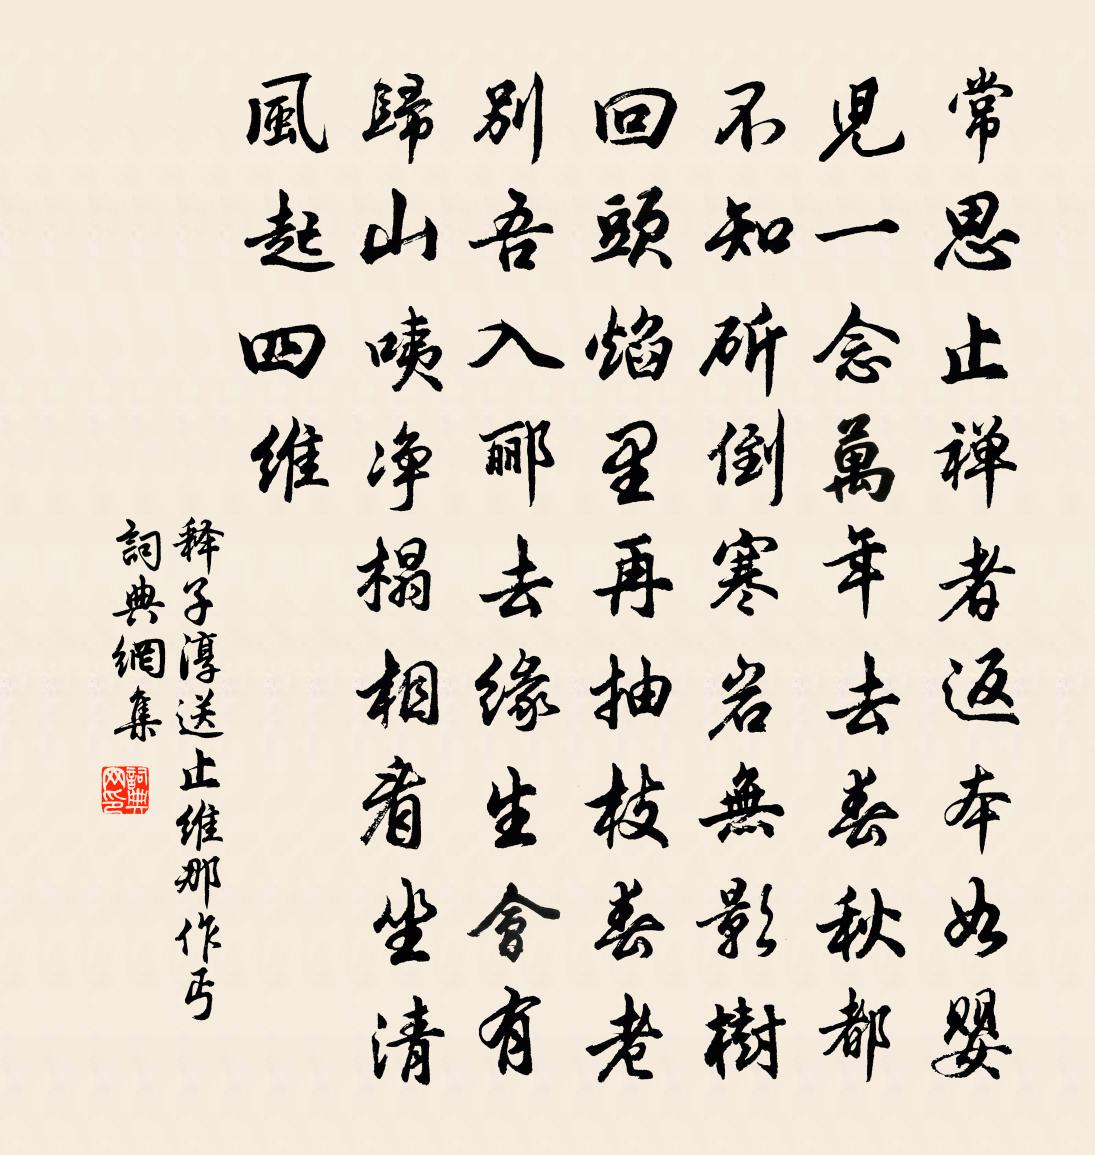 常思止禅者返本如嬰
児一念萬年去春秋都
不知斫倒寒岩無影樹
回頭焰里再抽枝春老
別吾入郦去緣生會有
歸山咦净榻相看坐清
風起四維
释子淳送止維那作丐
詞典網集
詞典网印